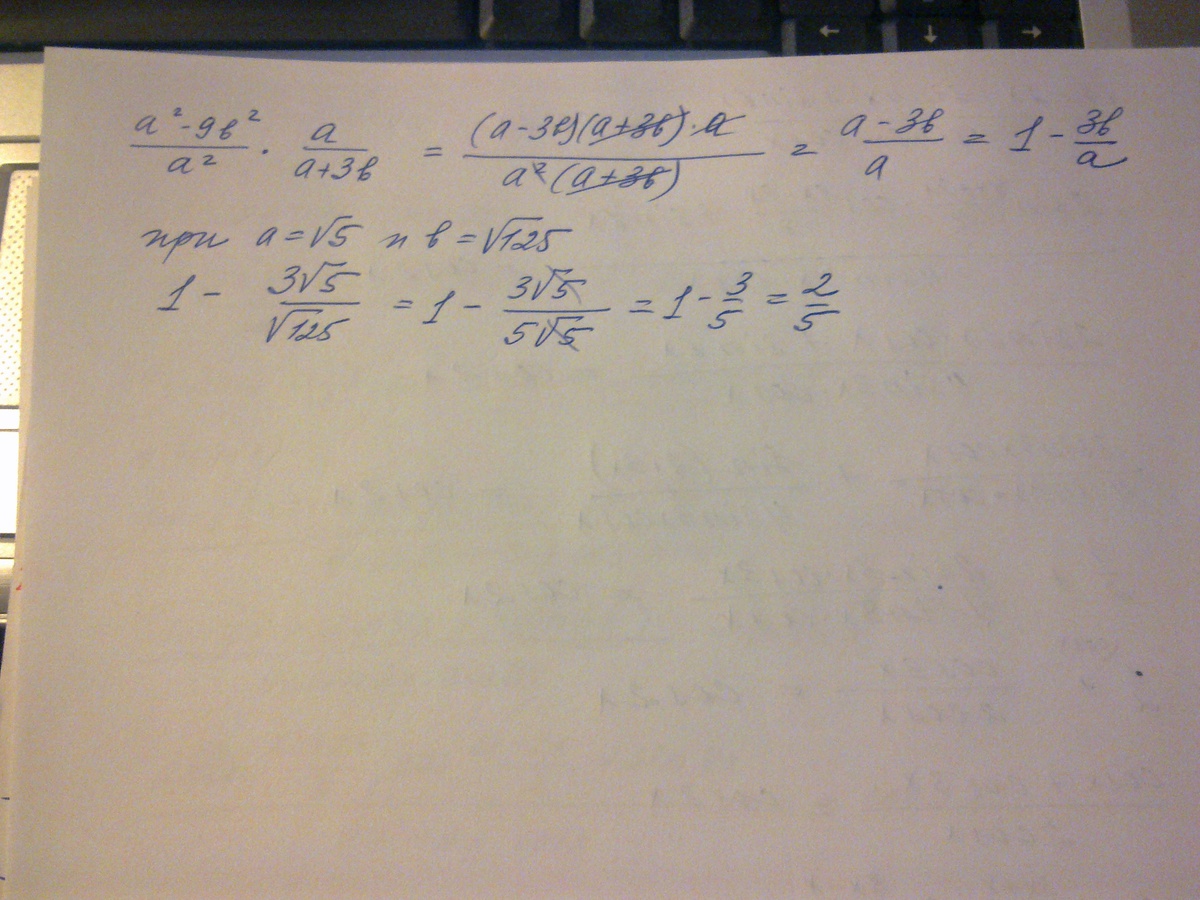 a²-9b²/a² · a/a+3b = (a-3b)(a+3b)·a/a²(a+3b) = a-3b/a = 1 - 3b/a
при a=√5 и b=√125
1 - 3√5/√125 = 1 - 3√5/5√5 = 1 - 3/5 = 2/5